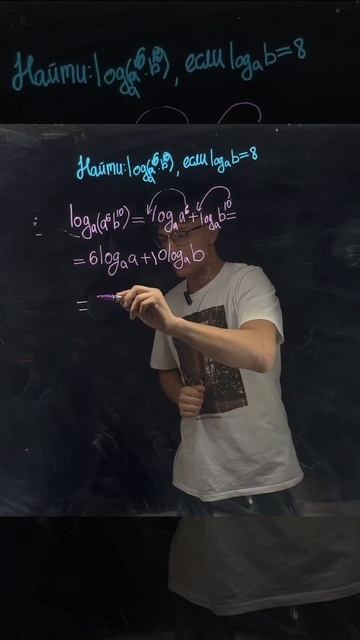 Найти: logₐ(a⁶·b¹⁰), если logₐb=8
Найти: logₐ(a⁶·b¹⁰), если logₐb=8
logₐ(a⁶b¹⁰) = logₐa⁶+logₐb¹⁰=
=6logₐa+10logₐb
=